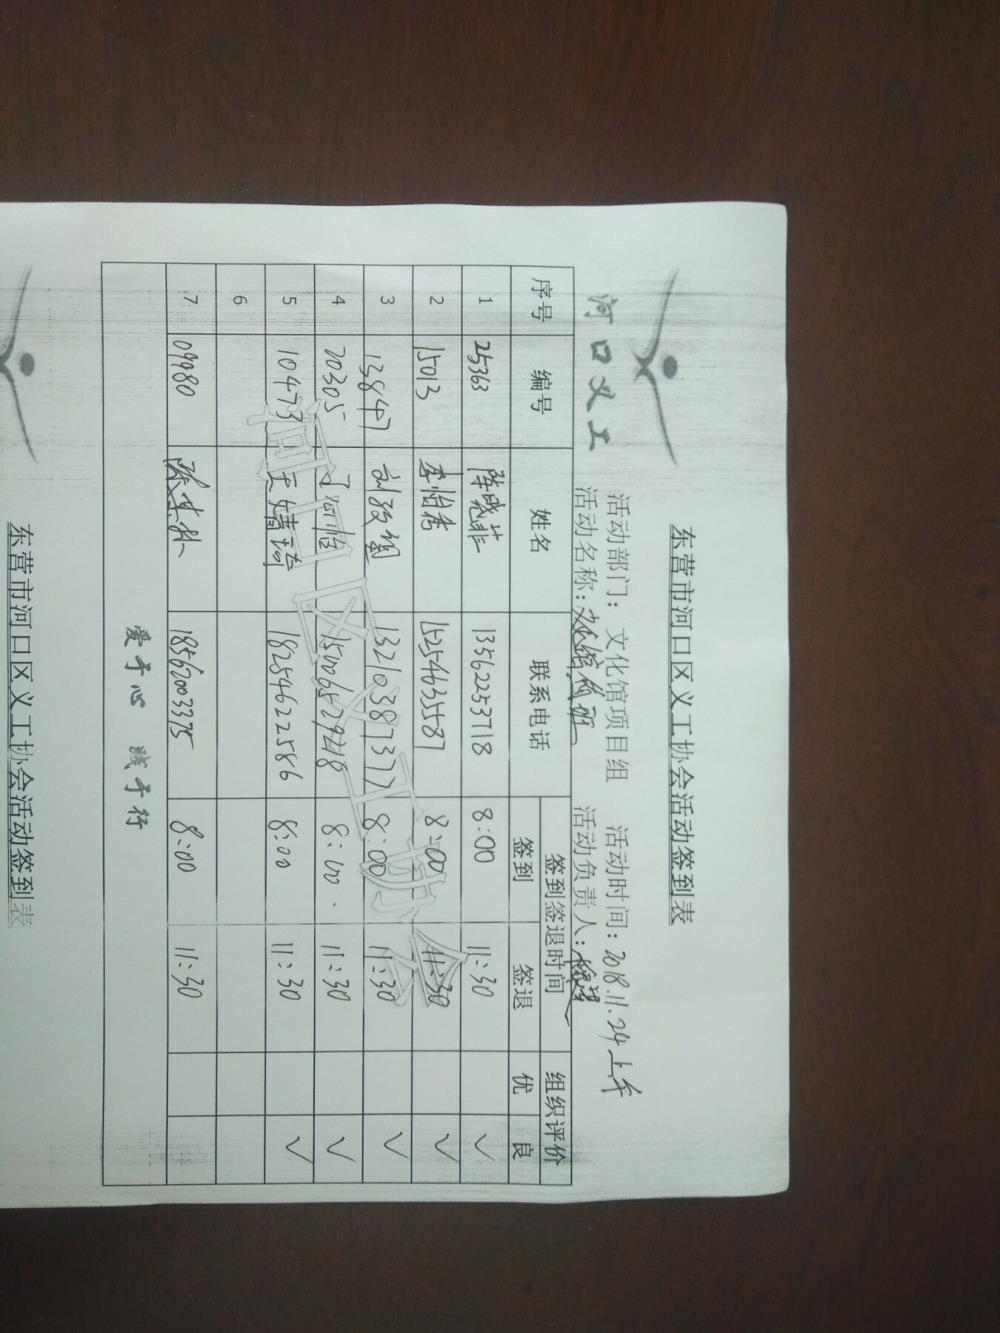 东营市河口区义工协会活动签到表
河口义工
活动部门：文化馆项目组 活动时间：2018.11.24上午
活动名称：文化馆 活动负责人：
序号 编号 姓名 联系电话 签到签退时间 组织评价
签到 签退 优 良
1 25363 陈晓菲 13562253718 8:00 11:30 √
2 15013 李怡 15254635587 8:00 11:30 √
3 13847 刘 13210387377 8:00 11:30 √
4 20305 15006829218 8:00 11:30 √
5 10473 王婧琦 18254622586 8:00 11:30 √
6
7 09980 陈 18562003375 8:00 11:30
爱于心 践于行
河口区义工协会
东营市河口区义工协会活动签到表